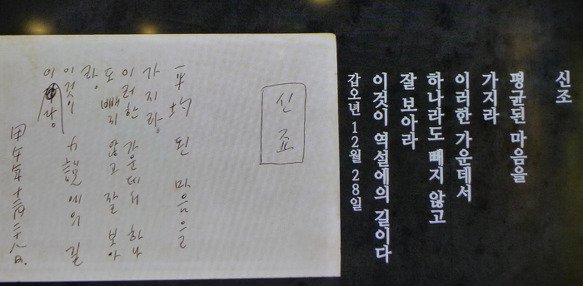 신조
평균된 마음을
가지라
이러한 가운데서
하나라도 빼지 않고
잘 보아라
이것이 역설에의 길이다
갑오년 12월 28일
신조
平均된 마음을
가지랑
이러한 가운데서 하나
도 빼지 않고 잘 보아
라
이것이 力說에의 길
이다
甲午年 十二月 二十八日